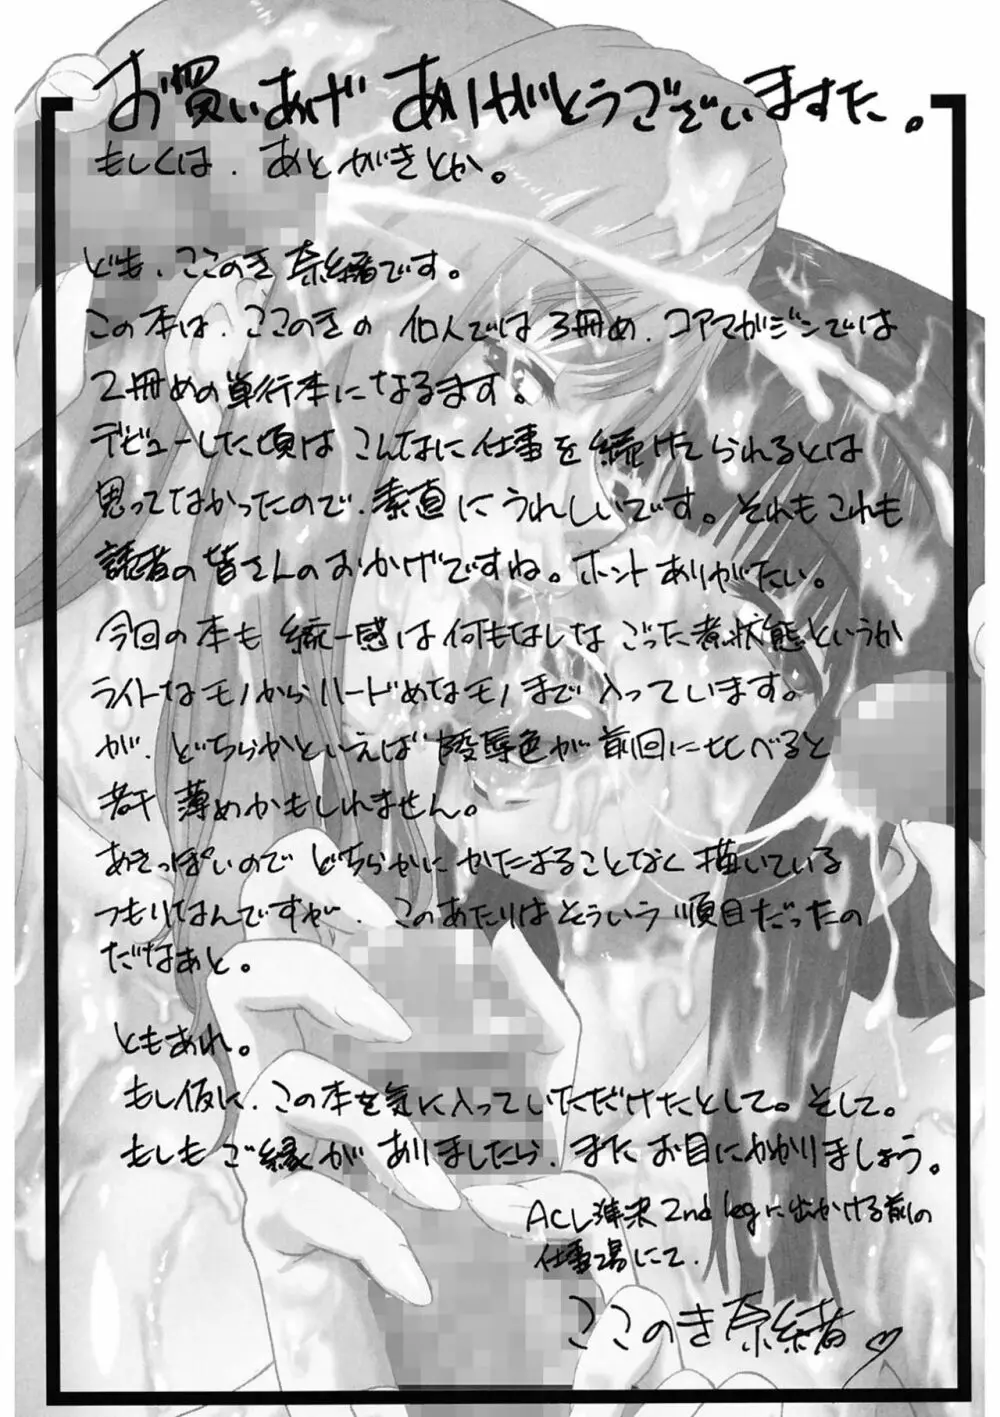 お買いあげ ありがとうございますた。
もしくは、あとがきとか。
ども、ここのき奈緒です。
この本は、ここのきの個人では3冊め、コアマガジンでは
2冊めの単行本になるます。
デビューした頃はこんなに仕事を続けてられるとは
思ってなかったので、素直にうれしいです。それもこれも
読者の皆さんのおかげですね。ホントありがたい。
今回の本も統一感は何もなしなごった煮状態というか
ライトなモノからハードめなモノまで入っています。
が、どちらかといえば陵辱色が前回に比べると
若干薄めかもしれません。
あきっぽいのでどちらかにかたまることなく描いている
つもりなんですが、このあたりはそういう順目だったの
だなぁと。
ともあれ。
もし仮に、この本を気に入っていただけたとして。そして。
もしもご縁がありましたら、またお目にかかりましょう。
ACL準決2nd legに出かける前の
仕事場にて。
ここのき奈緒